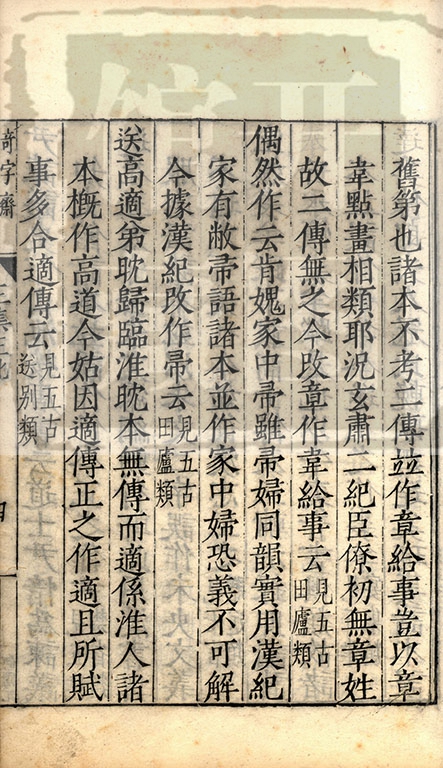 舊第也諸本不考二傳竝作章給事豈以章
韋點畫相類耶況玄肅二紀臣僚初無章姓
故二傳無之今攺章作韋給事云見五古田廬類
偶然作云肯媿家中帚雖帚婦同韻實用漢紀
家有敝帚語諸本並作家中婦恐義不可解
今據漢紀攺作帚云見五古田廬類
送高適弟耽歸臨淮耽本無傳而適係淮人諸
本概作高道今姑因適傳正之作適且所賦
事多合適傳云見五古送别類
奇字齋